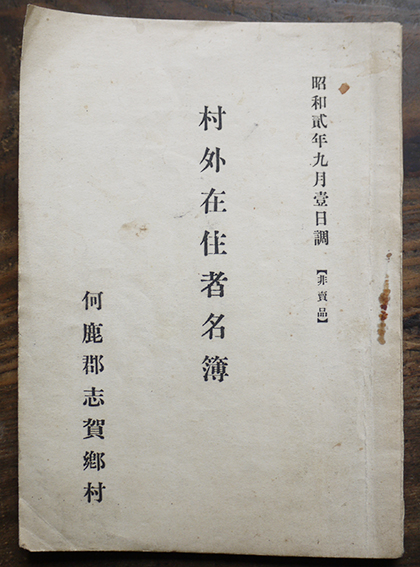 昭和貳年九月壹日調【非賣品】
村外在住者名簿
何鹿郡志賀鄕村